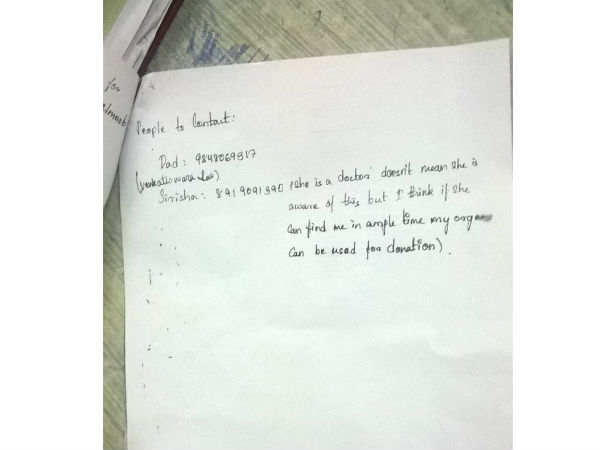 for
almost
People to Contact:
Dad: 9848069317
Sirisha: 8919091390 (she is a doctor doesn't mean she is
aware of this but I think if she
can find me in ample time my
can be used for donation).